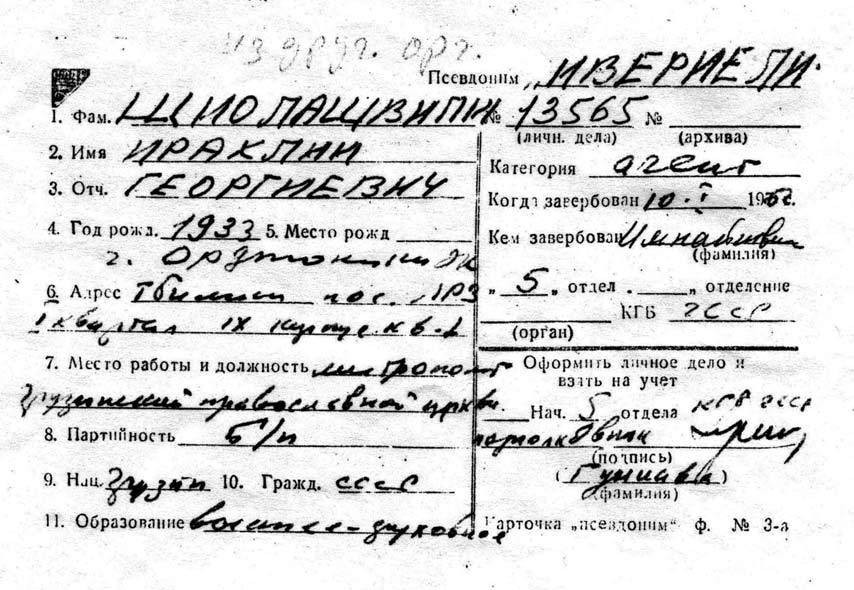 из друг. орг.
Псевдоним „ИВЕРИЕЛИ"
1. Фам. ШИОЛАШВИЛИ
2. Имя ИРАКЛИЙ
3. Отч. ГЕОРГИЕВИЧ
4. Год рожд. 1933 5. Место рожд
г. Орджоникидзе
6. Адрес Тбилиси пос. ЛРЗ
I квартал IX корпус кв-
7. Место работы и должность митрополит
Грузинской православной церкви
8. Партийность б/п
9. Нац. грузин 10. Гражд. СССР
11. Образование высшее-духовное
№ 13565 №
(личн. дела) (архива)
Категория агент
Когда завербован 10. I 196
Кем завербован
(фамилия)
„ 5 „ отдел „ отделение
КГБ ГССР
(орган)
Оформить личное дело и
взять на учет
Нач. 5 отдела КГБ ГССР
подполковник
(подпись)
(Гуниава)
(фамилия)
Карточка „псевдоним" ф. № 3-а